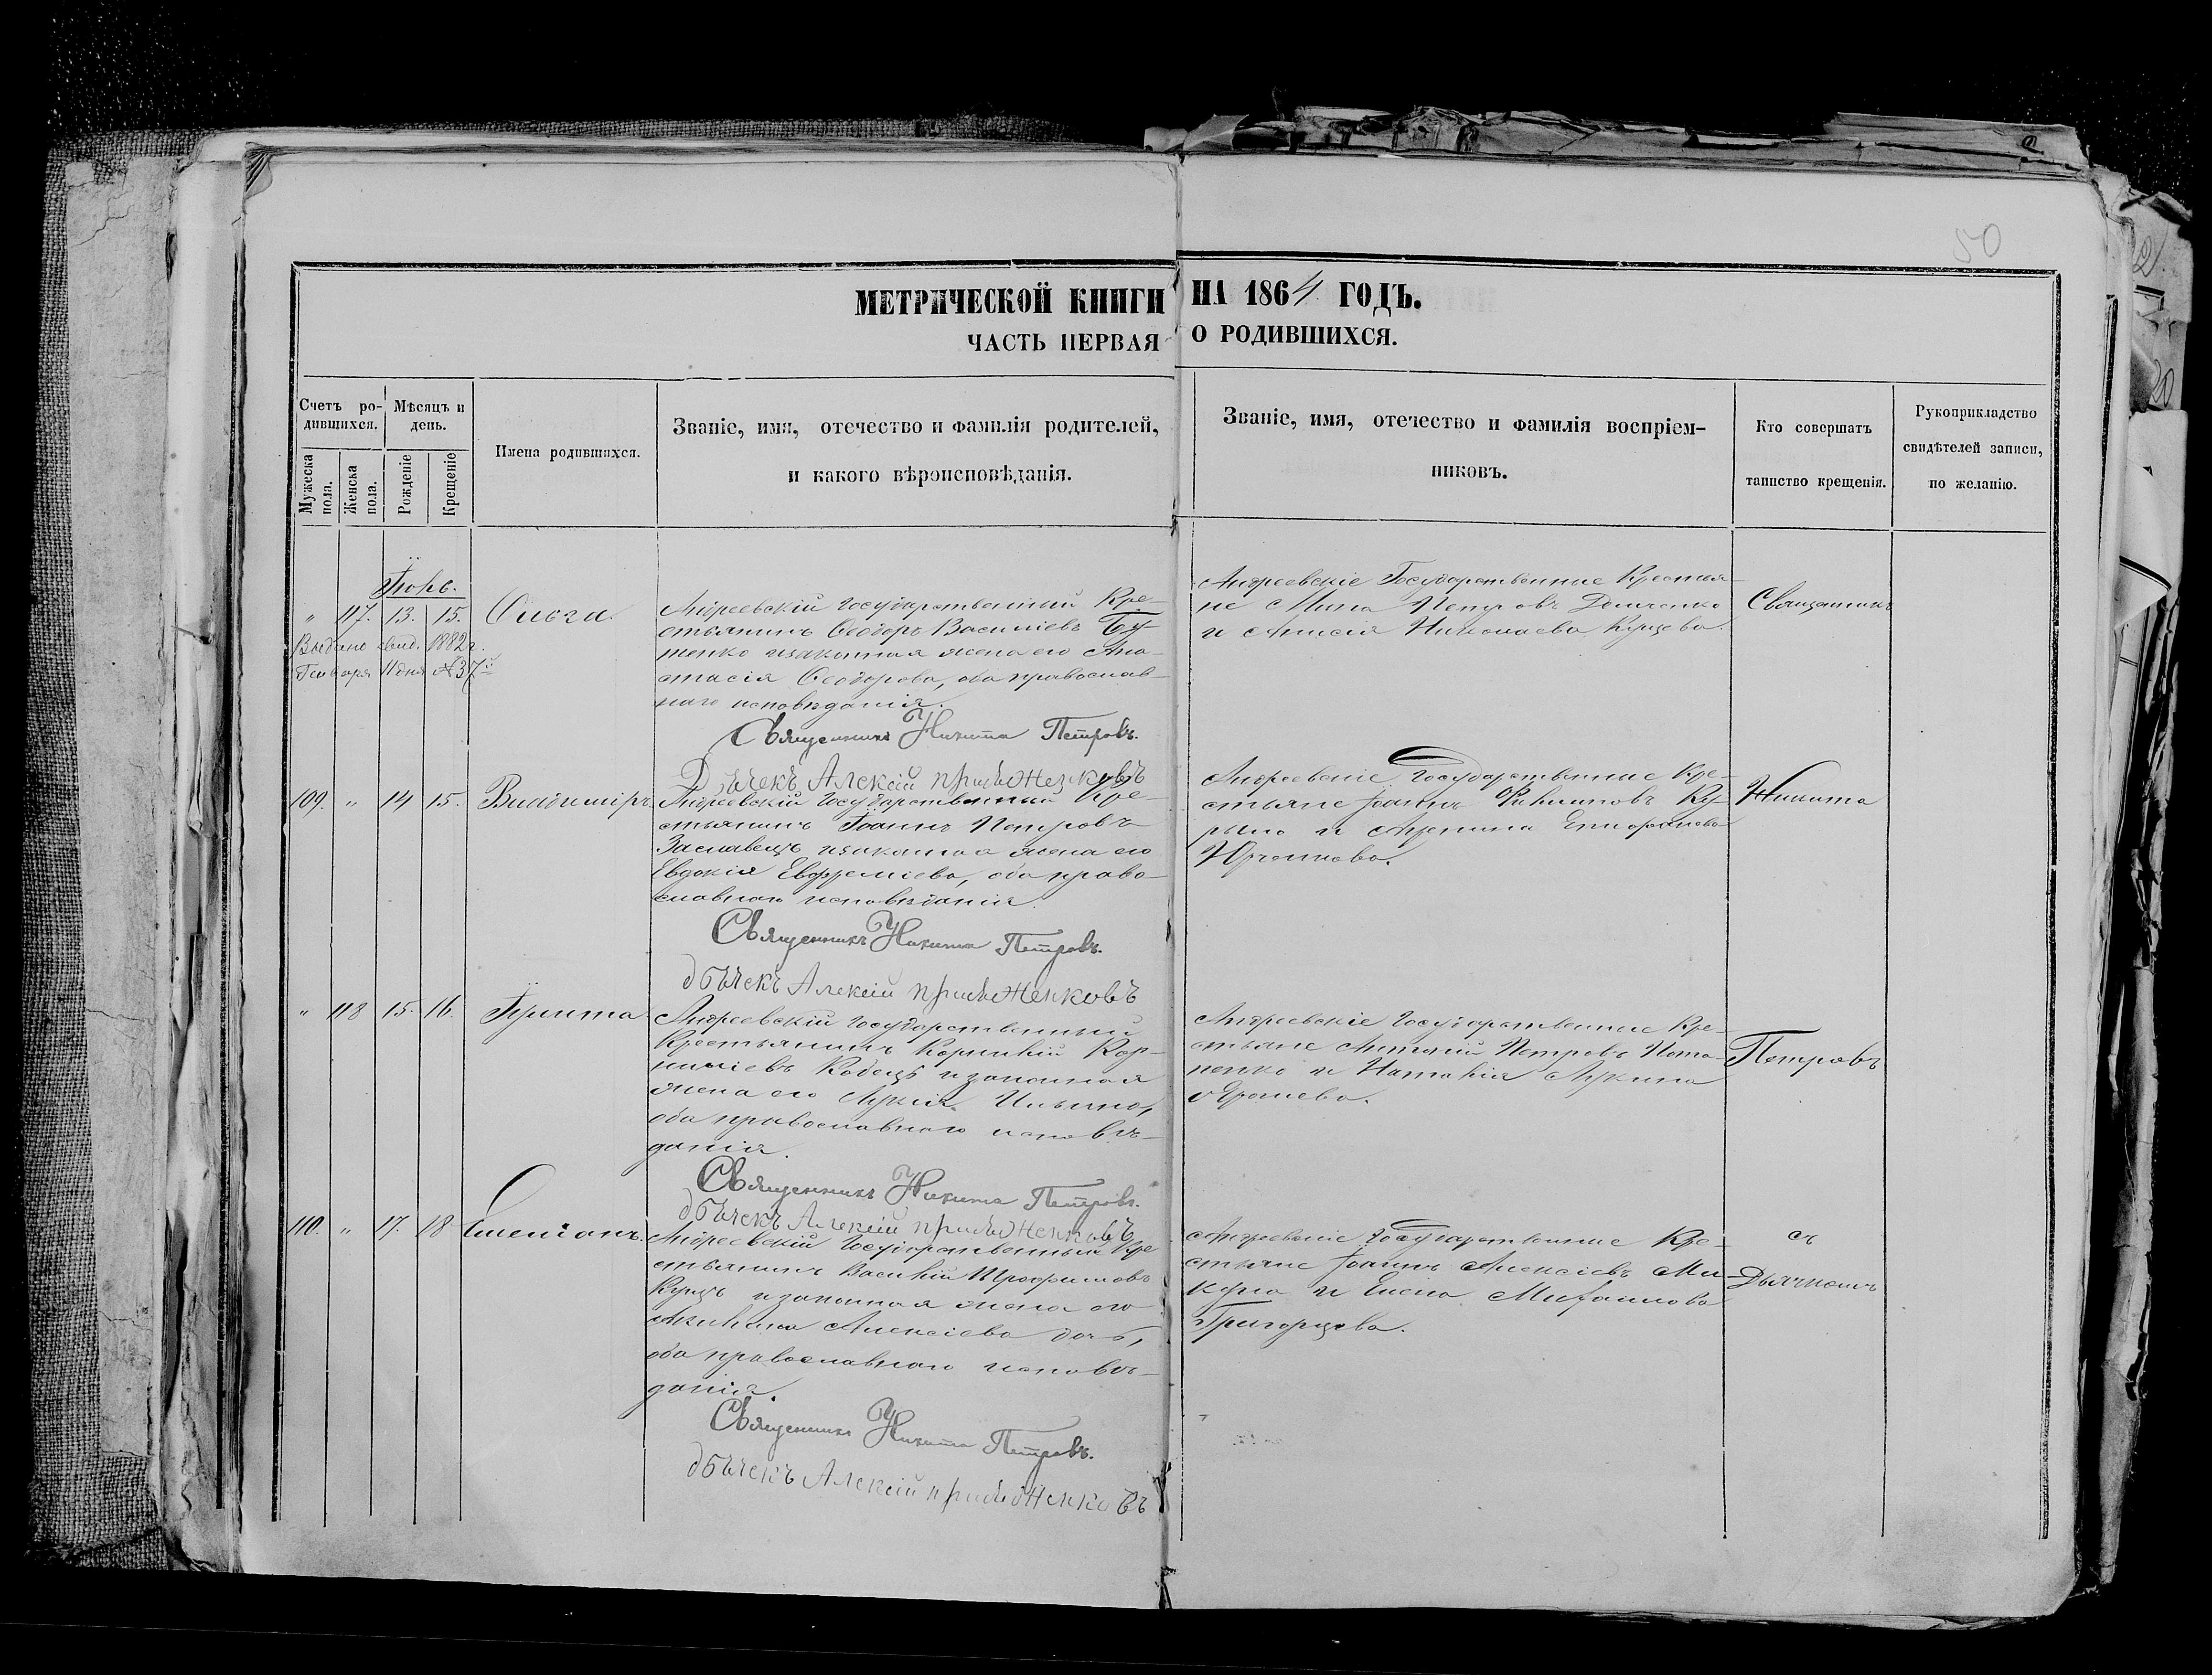 50
МЕТРИЧЕСКОЙ КНИГИ НА 1864 ГОДЪ.
ЧАСТЬ ПЕРВАЯ О РОДИВШИХСЯ.
Счетъ ро-
дившихся.
Мужеска пола.
Женска пола.
Мѣсяцъ и
день.
Рожденіе
Крещеніе
Имена родившихся.
Званіе, имя, отечество и фамилія родителей,
и какого вѣроисповѣданія.
Званіе, имя, отечество и фамилія воспріем-
никовъ.
Кто совершатъ
таинство крещенія.
Рукоприкладство
свидѣтелей записи,
по желанію.
Іюнь.
" 117. 13. 15. Ольга.
Выдано свид. 1882 г.
Генваря 11 дня №37
Андреевскій Государственный Кре-
стьянинъ Ѳеодоръ Василіевъ Бу-
тенко и законная жена его Ана-
стасія Ѳеодорова, оба православ-
наго исповѣданія.
Священникъ Никита Петровъ.
Дьячекъ Алексій
Андреевскіе Государственные Крестья-
не Мина Петровъ
и Анисія Николаева Купцева.
Священникъ
109. " 14 15. Владиміръ
Андреевскій Государственный Кре-
стьянинъ Іоаннъ Петровъ
Заславецъ и законная жена его
Евдокія Евфреміева, оба право-
славнаго исповѣданія.
Священникъ Никита Петровъ.
дьячекъ Алексій
Андреевскіе Государственные Кре-
стьяне Іоаннъ Филиповъ Ку-
рыло и Агрипина Епифанова
Юрченкова.
Никита
" 118 15. 16. Іулита
Андреевскій Государственный
Крестьянинъ Корнилій Кор-
ниліевъ Кобецъ и законная
жена его Лукія Ильина,
оба православнаго исповѣ-
данія.
Священникъ Никита Петровъ.
дьячекъ Алексій
Андреевскіе Государственные Кре-
стьяне Антоній Петровъ Пота-
пенко и Наталія Лукина
Ярошева.
Петровъ
110. " 17. 18 Емеліанъ.
Андреевскій Государственный Кре
стьянинъ Василій Трофимовъ
Купцъ и законная жена его
Акилина Алексіева дочь,
оба православнаго исповѣ-
данія.
Священникъ Никита Петровъ.
дьячекъ Алексій
Андреевскіе Государственные Кре-
стьяне Іоаннъ Алексіевъ Ми-
кула и Елена Михаилова
Григорцева.
съ
Дьячкомъ